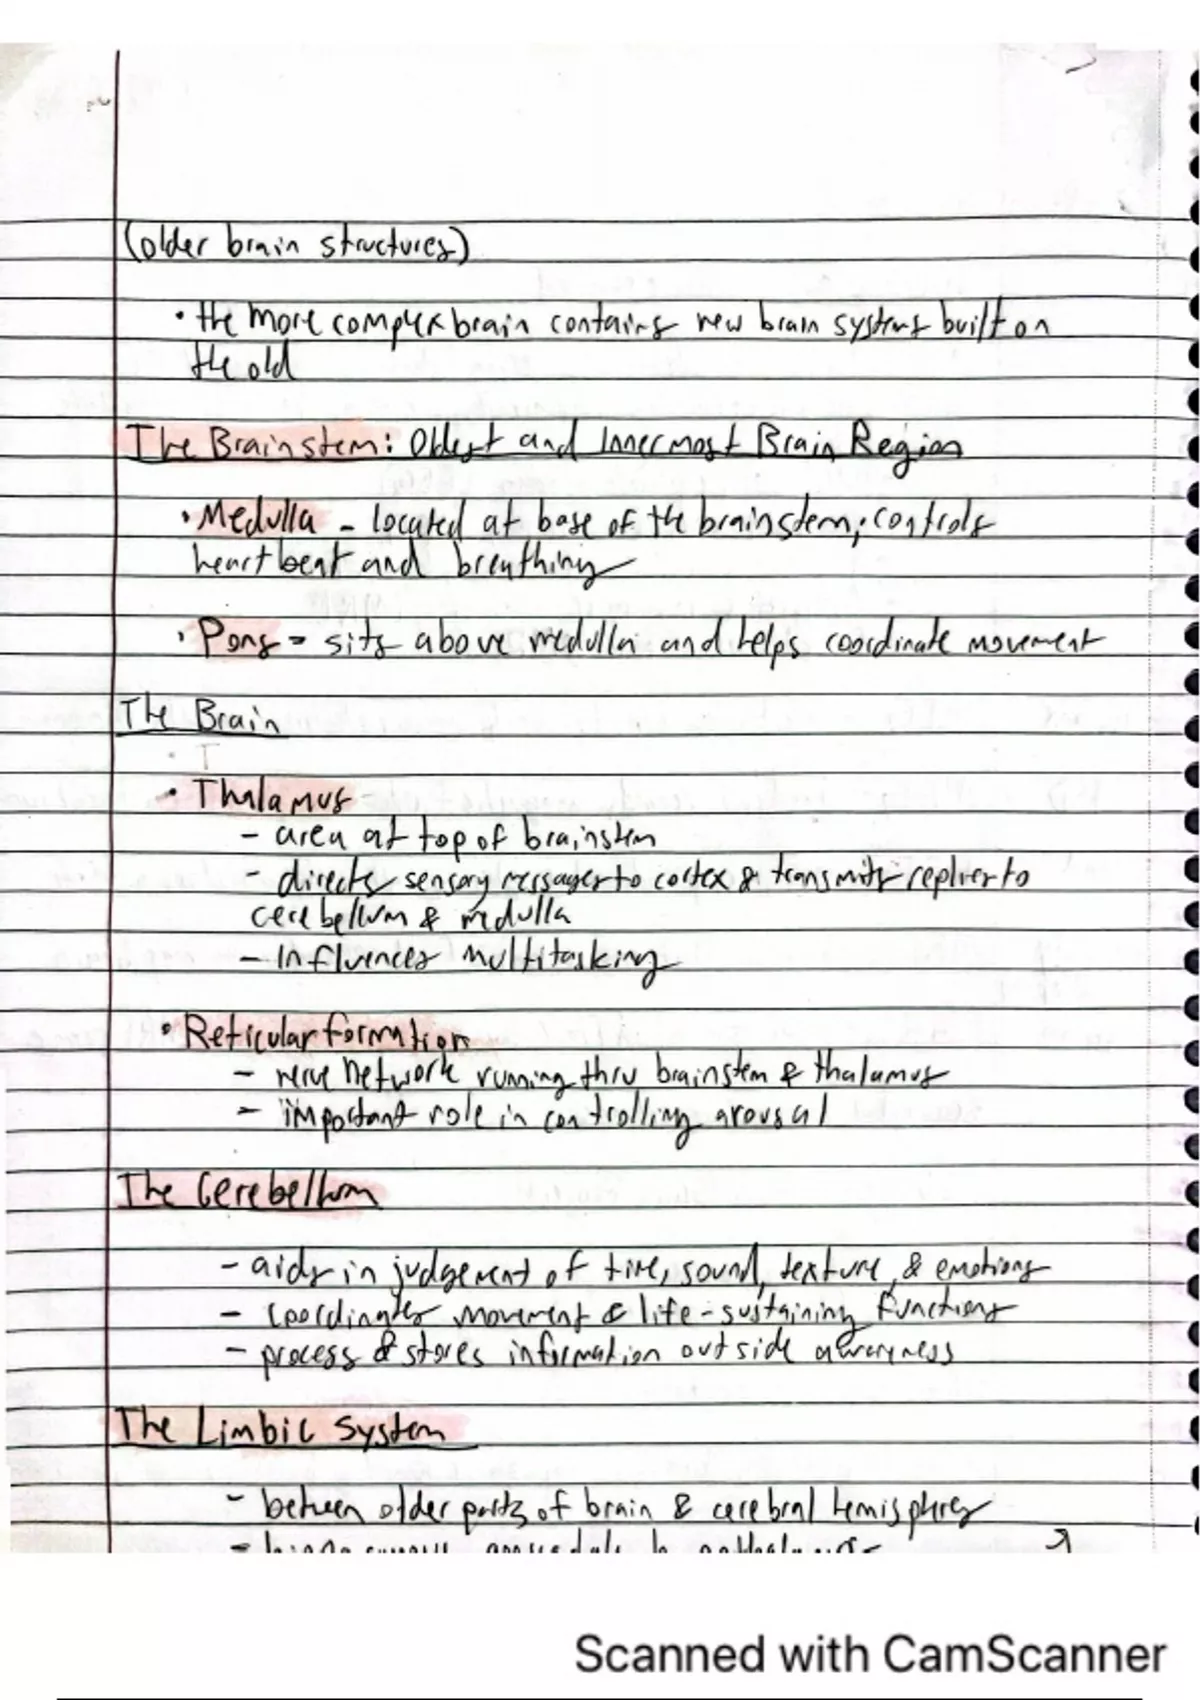 (older brain structures)
• the more complex brain contains new brain systems built on
the old
The Brainstem: Oldest and Innermost Brain Region
• Medulla - located at base of the brainstem; controls
heartbeat and breathing
• Pons - sits above medulla and helps coordinate movement
The Brain
• T
• Thalamus
- area at top of brainstem
- directs sensory messages to cortex & transmits replies to
cerebellum & medulla
- Influences multitasking
• Reticular formation
- nerve network running thru brainstem & thalamus
- important role in controlling arousal
The Cerebellum
- aids in judgement of time, sound, texture, & emotions
- coordinates movement & life-sustaining functions
- process & stores information outside awareness
The Limbic System
- between older parts of brain & cerebral hemispheres
Scanned with CamScanner